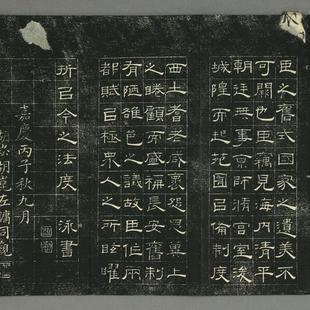 臣之舊式國家之遺美不
可闕也臣竊見海內清平
朝廷無事京師脩宮室浚
城隍而起苑囿㠯備制度
西土耆老咸懷怨思冀上
之睠顧而盛稱長安舊制
有陋雒邑之議故臣作兩
都賦㠯極衆人之所眩曜
折㠯今之法度 泳書
嘉慶丙子秋九月
左鏞同觀